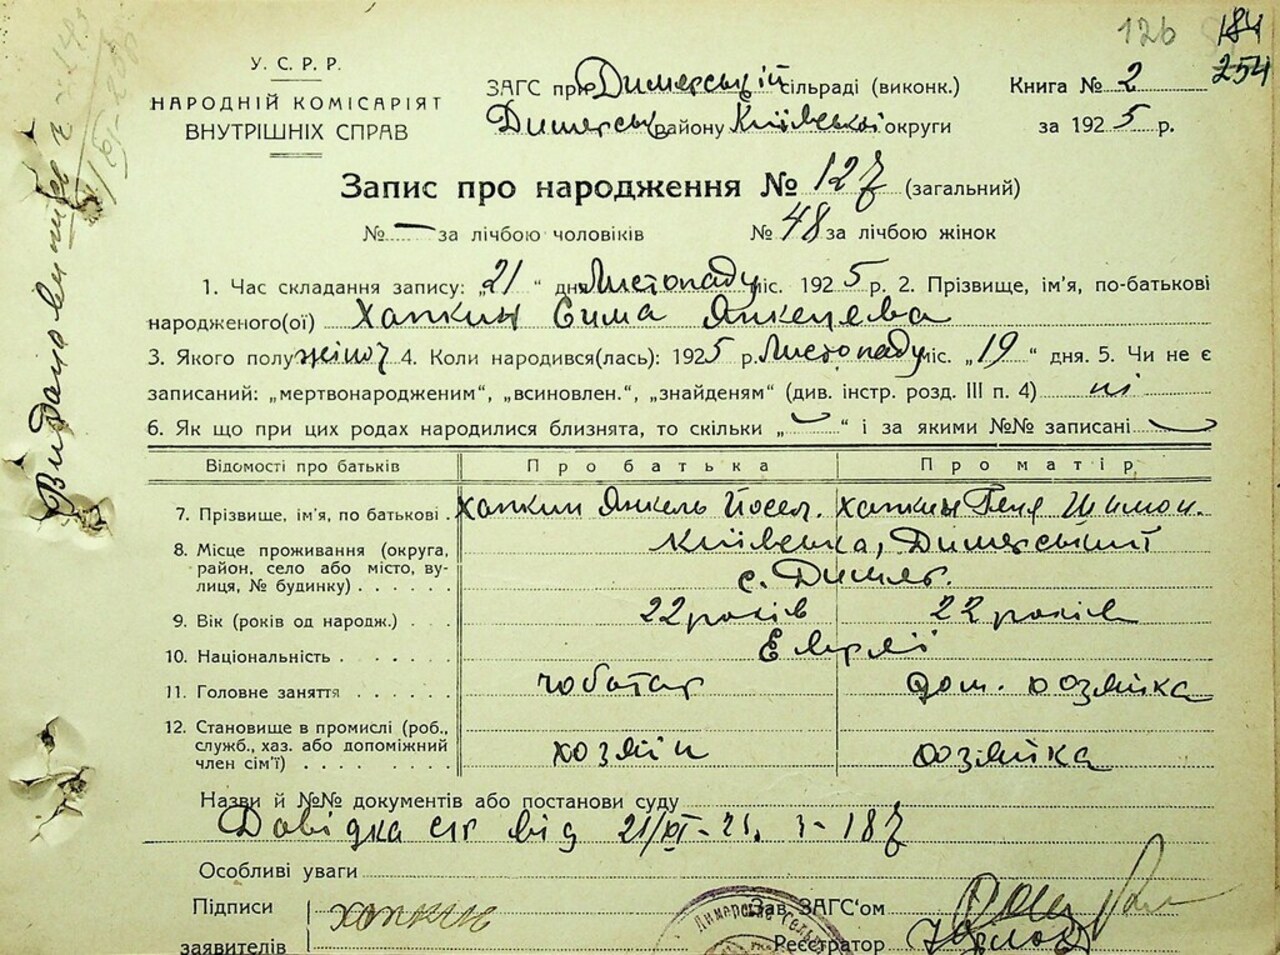 126 184
254
У. С. Р. Р.
НАРОДНІЙ КОМІСАРІЯТ
ВНУТРІШНІХ СПРАВ
ЗАГС при Димерській сільраді (виконк.)
Димерськ району Київської округи
Книга № 2
за 1925 р.
Запис про народження № 127 (загальний)
№ — за лічбою чоловіків № 48 за лічбою жінок
1. Час складання запису: „21“ дня Листопаду міс. 1925 р. 2. Прізвище, ім'я, по-батькові
народженого(ої) Хапкин Сима Янкелева
3. Якого полу жіноч 4. Коли народився(лась): 1925 р. Листопаду міс. „19“ дня. 5. Чи не є
записаний: „мертвонародженим“, „всиновлен.“, „знайденям“ (див. інстр. розд. III п. 4) ні
6. Як що при цих родах народилися близнята, то скільки „—“ і за якими №№ записані —
Відомості про батьків Про батька Про матір
7. Прізвище, ім'я, по батькові . Хапкин Янкель Йосел. Хапкин Геня Шимон.
8. Місце проживання (округа, район, село або місто, вулиця, № будинку) . . . . . . Київська, Димерський
с. Димер.
9. Вік (років од народж.) . . . 22 років 22 років
10. Національність . . . . . . Евреї
11. Головне заняття . . . . . . чоботар дом. хозяйка
12. Становище в промислі (роб., служб., хаз. або допоміжний член сім'ї) . . . . . . . . хозяїн хозяйка
Назви й №№ документів або постанови суду
Довідка від 21/XI-25. 187
Особливі уваги
Підписи
заявителів
Хапкин
Зав. ЗАГС'ом
Реєстратор